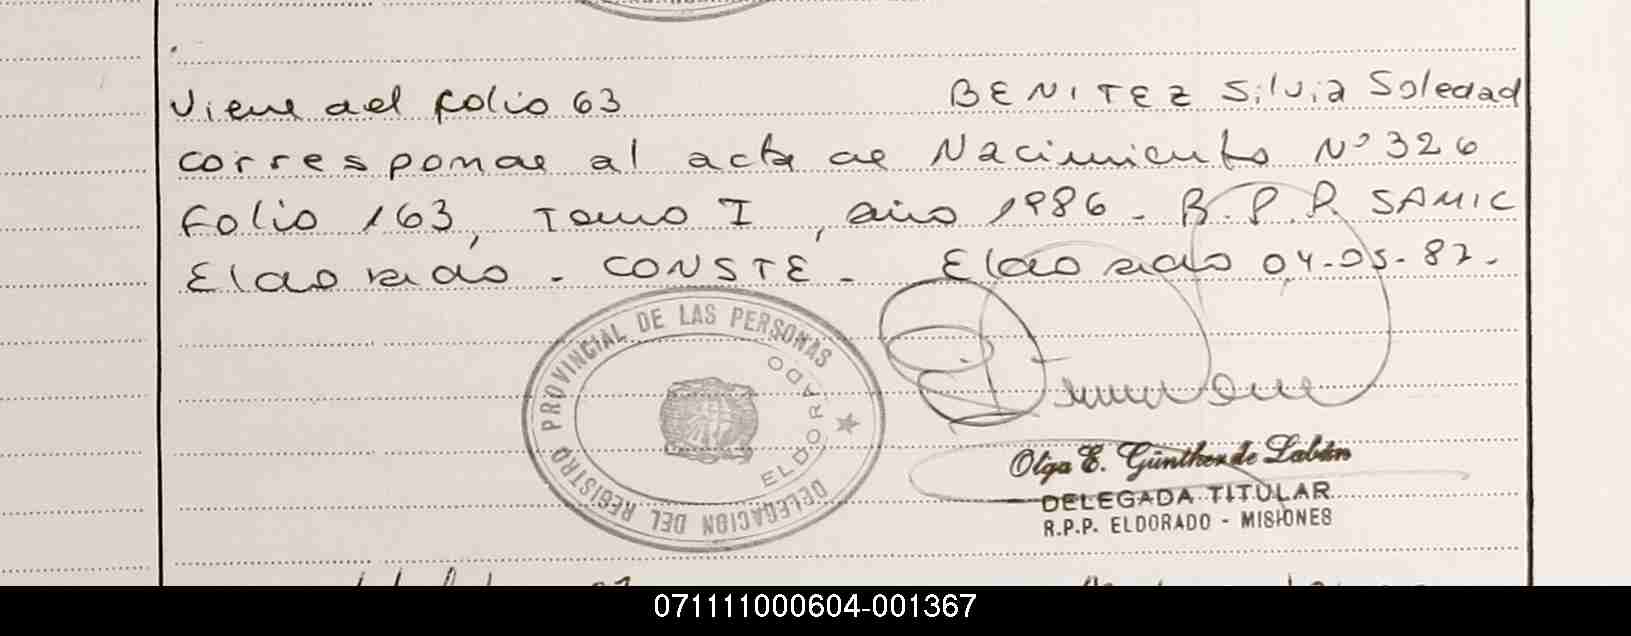 Viene del folio 63 BENITEZ Silvia Soledad
corresponde al acta de Nacimiento Nº 326
folio 163, Tomo I, año 1986 - R.P.P. SAMIC
Eldorado - CONSTE - Eldorado 04-05-87.
DELEGACION DEL REGISTRO PROVINCIAL DE LAS PERSONAS
ELDORADO
Olga E. Günther de Labán
DELEGADA TITULAR
R.P.P. ELDORADO - MISIONES
071111000604-001367